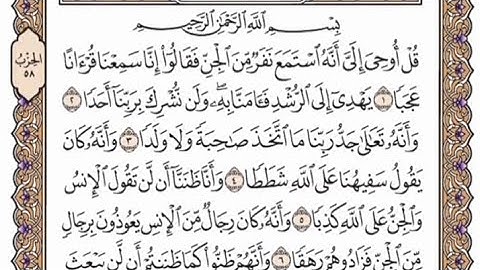 بِسْمِ اللَّهِ الرَّحْمَٰنِ الرَّحِيمِ
قُلْ أُوحِيَ إِلَيَّ أَنَّهُ اسْتَمَعَ نَفَرٌ مِّنَ الْجِنِّ فَقَالُوا إِنَّا سَمِعْنَا قُرْءَانًا
عَجَبًا ١ يَهْدِي إِلَى الرُّشْدِ فَـَٔامَنَّا بِهِۦ وَلَن نُّشْرِكَ بِرَبِّنَا أَحَدًا ٢
وَأَنَّهُۥ تَعَٰلَىٰ جَدُّ رَبِّنَا مَا اتَّخَذَ صَٰحِبَةً وَلَا وَلَدًا ٣ وَأَنَّهُۥ كَانَ
يَقُولُ سَفِيهُنَا عَلَى اللَّهِ شَطَطًا ٤ وَأَنَّا ظَنَنَّا أَن لَّن تَقُولَ الْإِنسُ
وَالْجِنُّ عَلَى اللَّهِ كَذِبًا ٥ وَأَنَّهُۥ كَانَ رِجَالٌ مِّنَ الْإِنسِ يَعُوذُونَ بِرِجَالٍ
مِّنَ الْجِنِّ فَزَادُوهُمْ رَهَقًا ٦ وَأَنَّهُمْ ظَنُّوا كَمَا ظَنَنتُمْ أَن لَّن يَبْعَثَ
الحِزْبُ
٥٨